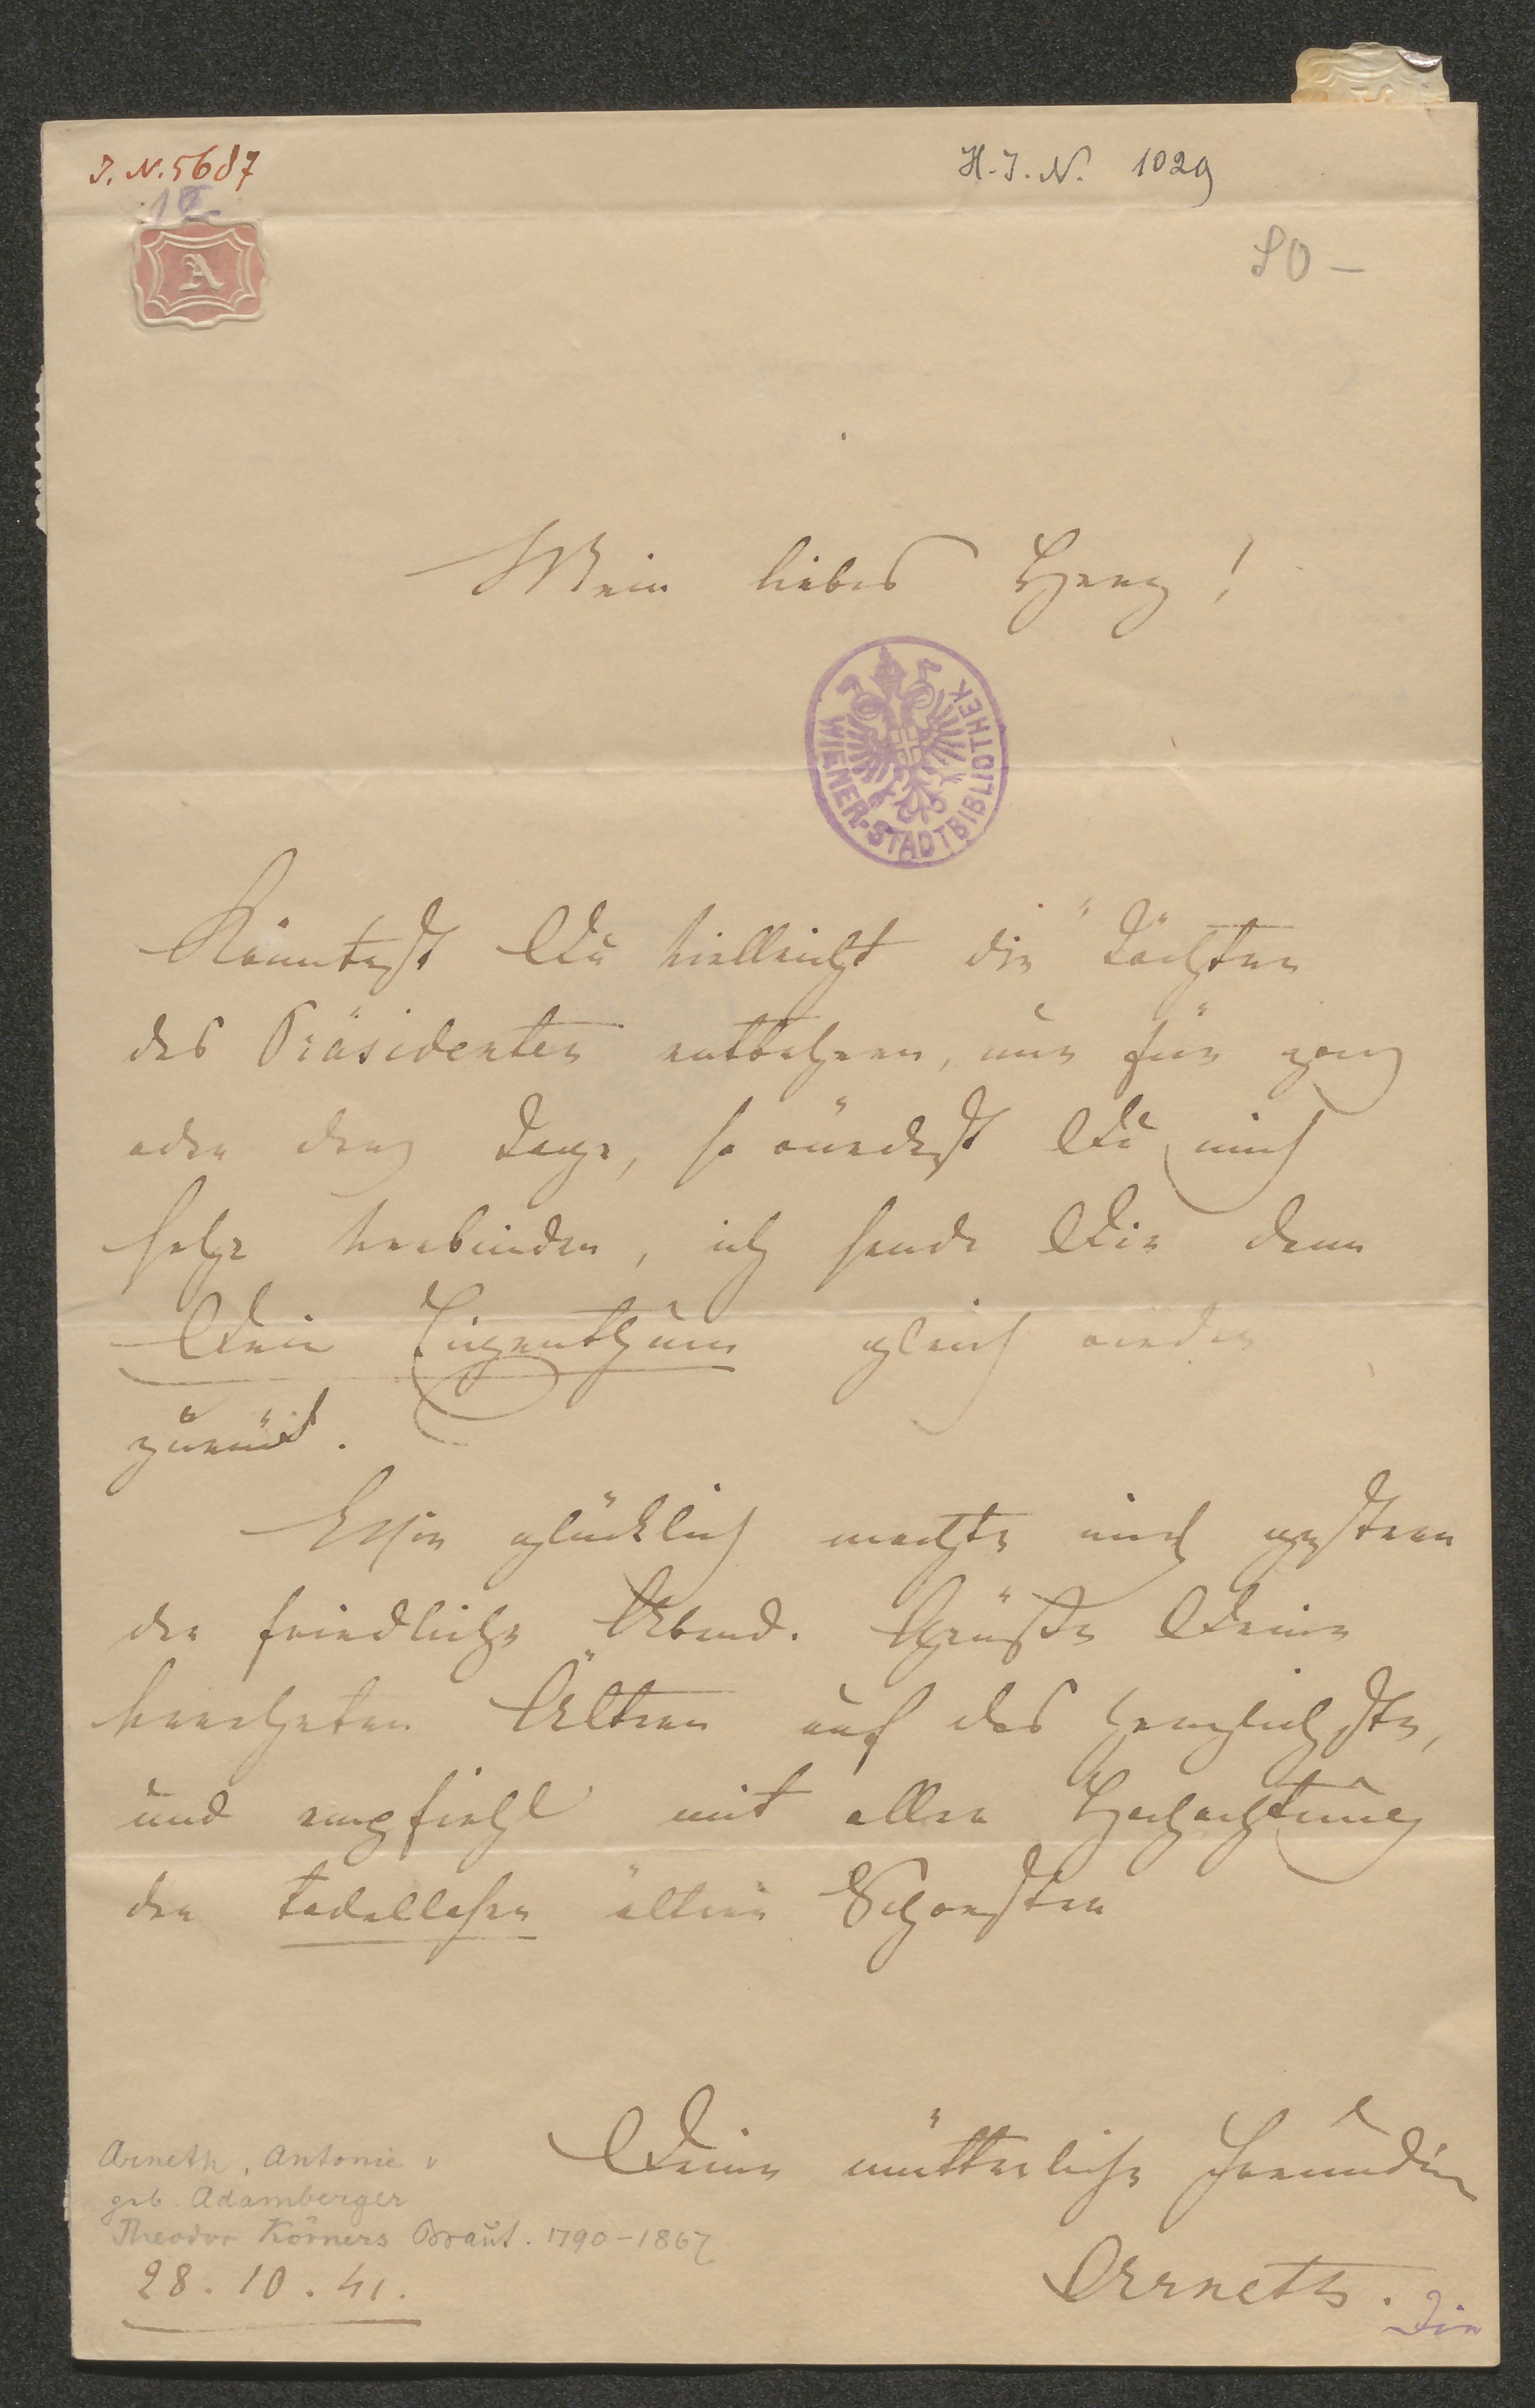 J. N. 5687
H. J. N. 1029
A
80 –
Mein liebes Herz!
WIENER-STADTBIBLIOTHEK
Könntest Du vielleicht die Töchter
des Präsidenten entbehren, nur für zwey
oder drey Tage, so würdest Du mich
sehr verbinden, ich sende Dir dann
Dein Eigenthum gleich wieder
zurück.
glücklich machte mich gestern
der friedliche Abend. Grüße Deine
verehrten Ältern auf das herzlichste,
und empfiehl mit aller Hochachtung
der tadellosen ältern Schwester
Deine mütterliche Freundin
Arneth.
Arneth, Antonie v
geb. Adamberger
Theodor Körners Braut. 1790-1867
28. 10. 41.